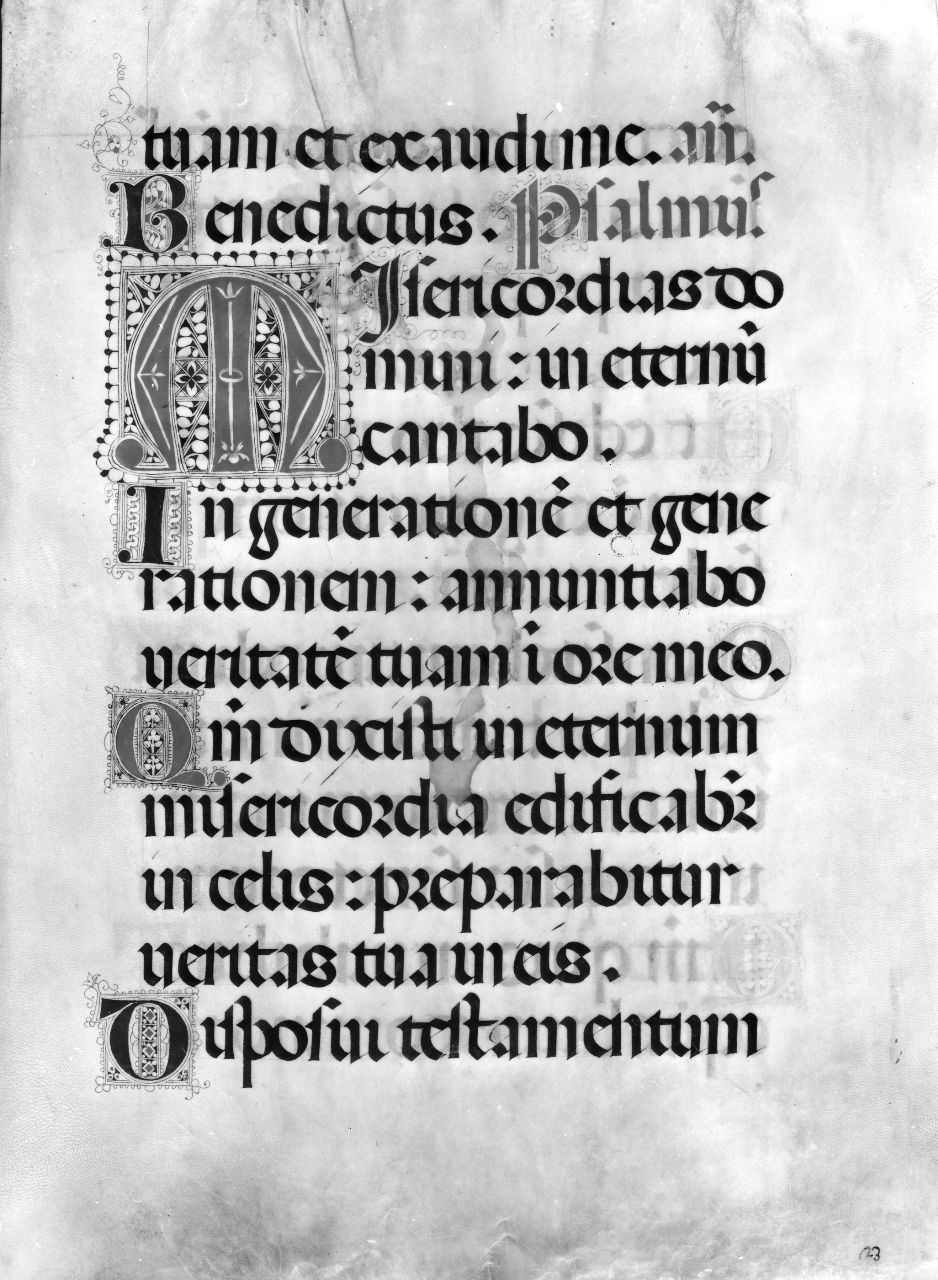 tuam et exaudi me. añ.
Benedictus. Psalmus.
MIsericordias do
mini : in eternū
cantabo.
In generationē et gene
rationem : annuntiabo
veritatē tuam ī ore meo.
Qm̄ dixisti in eternum
misericordia edificabr̄
in celis : preparabitur
veritas tua in eis.
Disposui testamentum
123